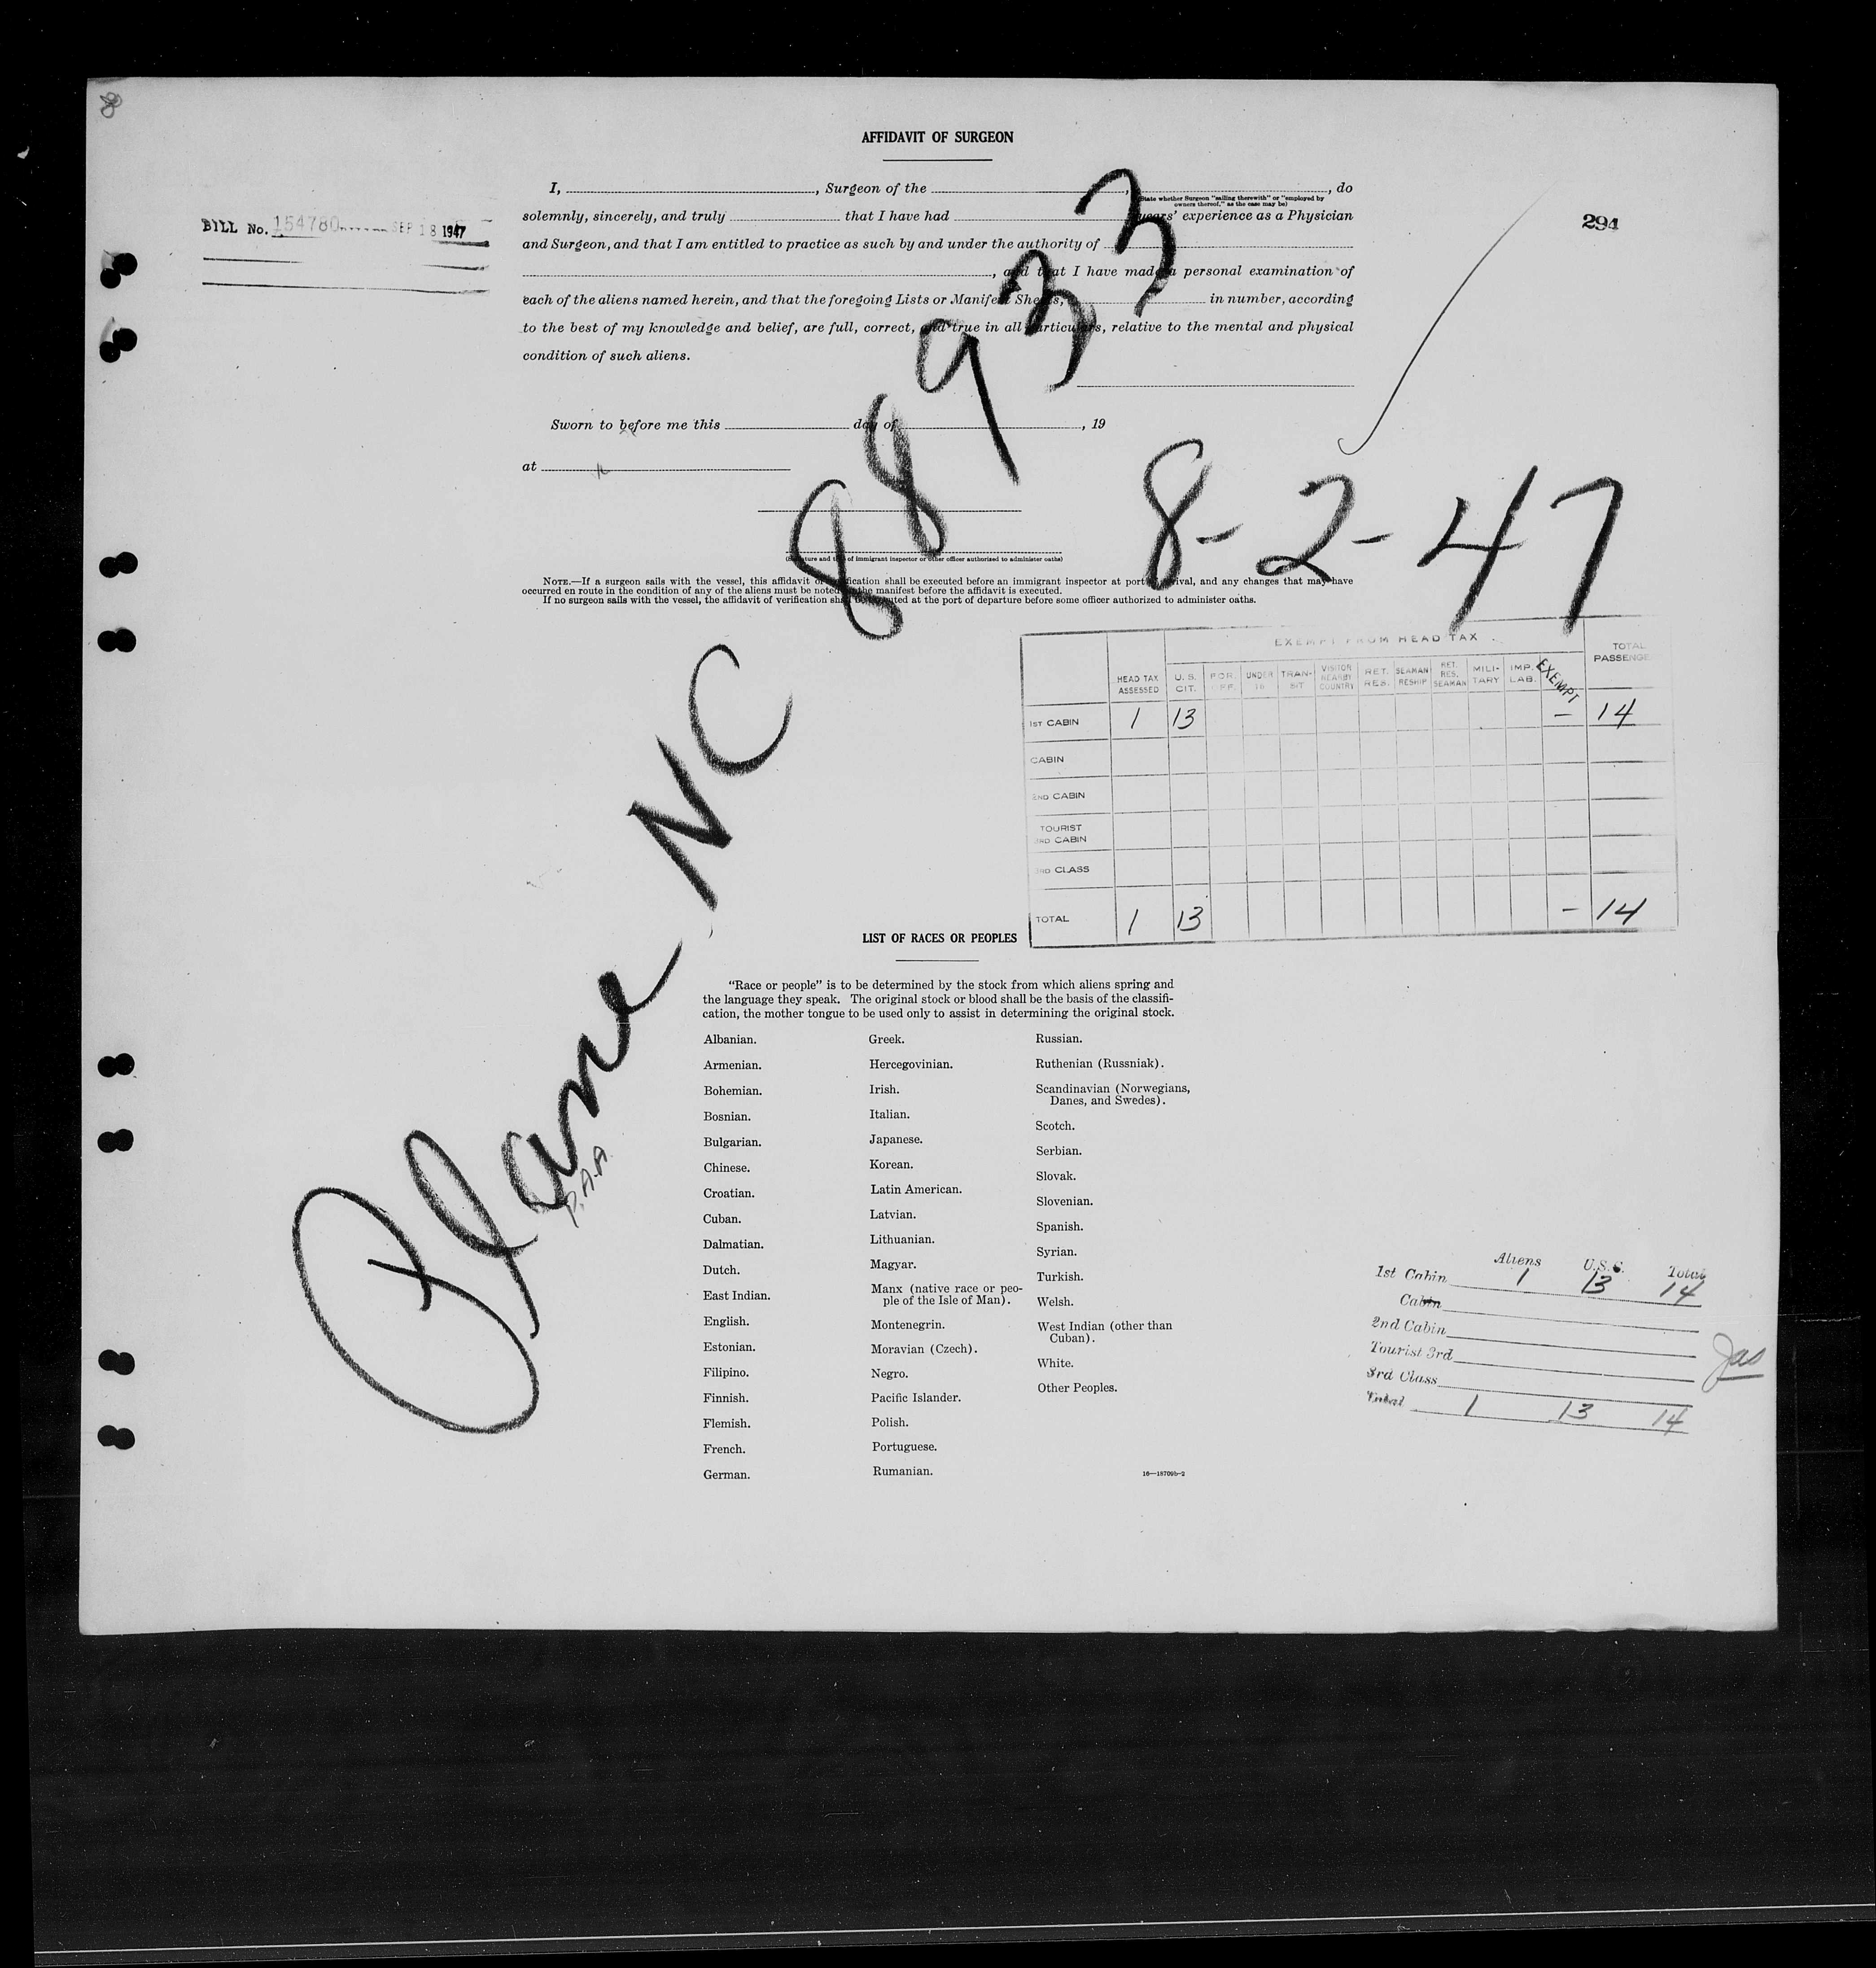 8
AFFIDAVIT OF SURGEON
I, , Surgeon of the , , do
(State whether Surgeon "sailing therewith" or "employed by
owners thereof," as the case may be)
solemnly, sincerely, and truly that I have had years' experience as a Physician
and Surgeon, and that I am entitled to practice as such by and under the authority of
, and that I have made a personal examination of
each of the aliens named herein, and that the foregoing Lists or Manifest Sheets, in number, according
to the best of my knowledge and belief, are full, correct, and true in all particulars, relative to the mental and physical
condition of such aliens.
BILL No. 154780 SEP 18 1947
294
Sworn to before me this day of , 19
at
(Signature and title of immigrant inspector or other officer authorized to administer oaths)
NOTE.—If a surgeon sails with the vessel, this affidavit of verification shall be executed before an immigrant inspector at port of arrival, and any changes that may have
occurred en route in the condition of any of the aliens must be noted on the manifest before the affidavit is executed.
If no surgeon sails with the vessel, the affidavit of verification shall be executed at the port of departure before some officer authorized to administer oaths.
Plane NC 88933
P.A.A.
8-2-47
EXEMPT FROM HEAD TAX
HEAD TAX ASSESSED U. S. CIT. FOR. OFF. UNDER 16 TRAN- SIT VISITOR NEARBY COUNTRY RET. RES. SEAMAN RESHIP RET. RES. SEAMAN MILI- TARY IMP. LAB. EXEMPT TOTAL PASSENGE
1ST CABIN 1 13 — 14
CABIN
2ND CABIN
TOURIST
3RD CABIN
3RD CLASS
TOTAL 1 13 — 14
LIST OF RACES OR PEOPLES
"Race or people" is to be determined by the stock from which aliens spring and
the language they speak. The original stock or blood shall be the basis of the classifi-
cation, the mother tongue to be used only to assist in determining the original stock.
Albanian.
Armenian.
Bohemian.
Bosnian.
Bulgarian.
Chinese.
Croatian.
Cuban.
Dalmatian.
Dutch.
East Indian.
English.
Estonian.
Filipino.
Finnish.
Flemish.
French.
German.
Greek.
Hercegovinian.
Irish.
Italian.
Japanese.
Korean.
Latin American.
Latvian.
Lithuanian.
Magyar.
Manx (native race or peo-
ple of the Isle of Man).
Montenegrin.
Moravian (Czech).
Negro.
Pacific Islander.
Polish.
Portuguese.
Rumanian.
Russian.
Ruthenian (Russniak).
Scandinavian (Norwegians,
Danes, and Swedes).
Scotch.
Serbian.
Slovak.
Slovenian.
Spanish.
Syrian.
Turkish.
Welsh.
West Indian (other than
Cuban).
White.
Other Peoples.
16—18709b-2
Aliens U.S.C. Total
1st Cabin 1 13 14
Cabin
2nd Cabin
Tourist 3rd
3rd Class
Total 1 13 14
Jas